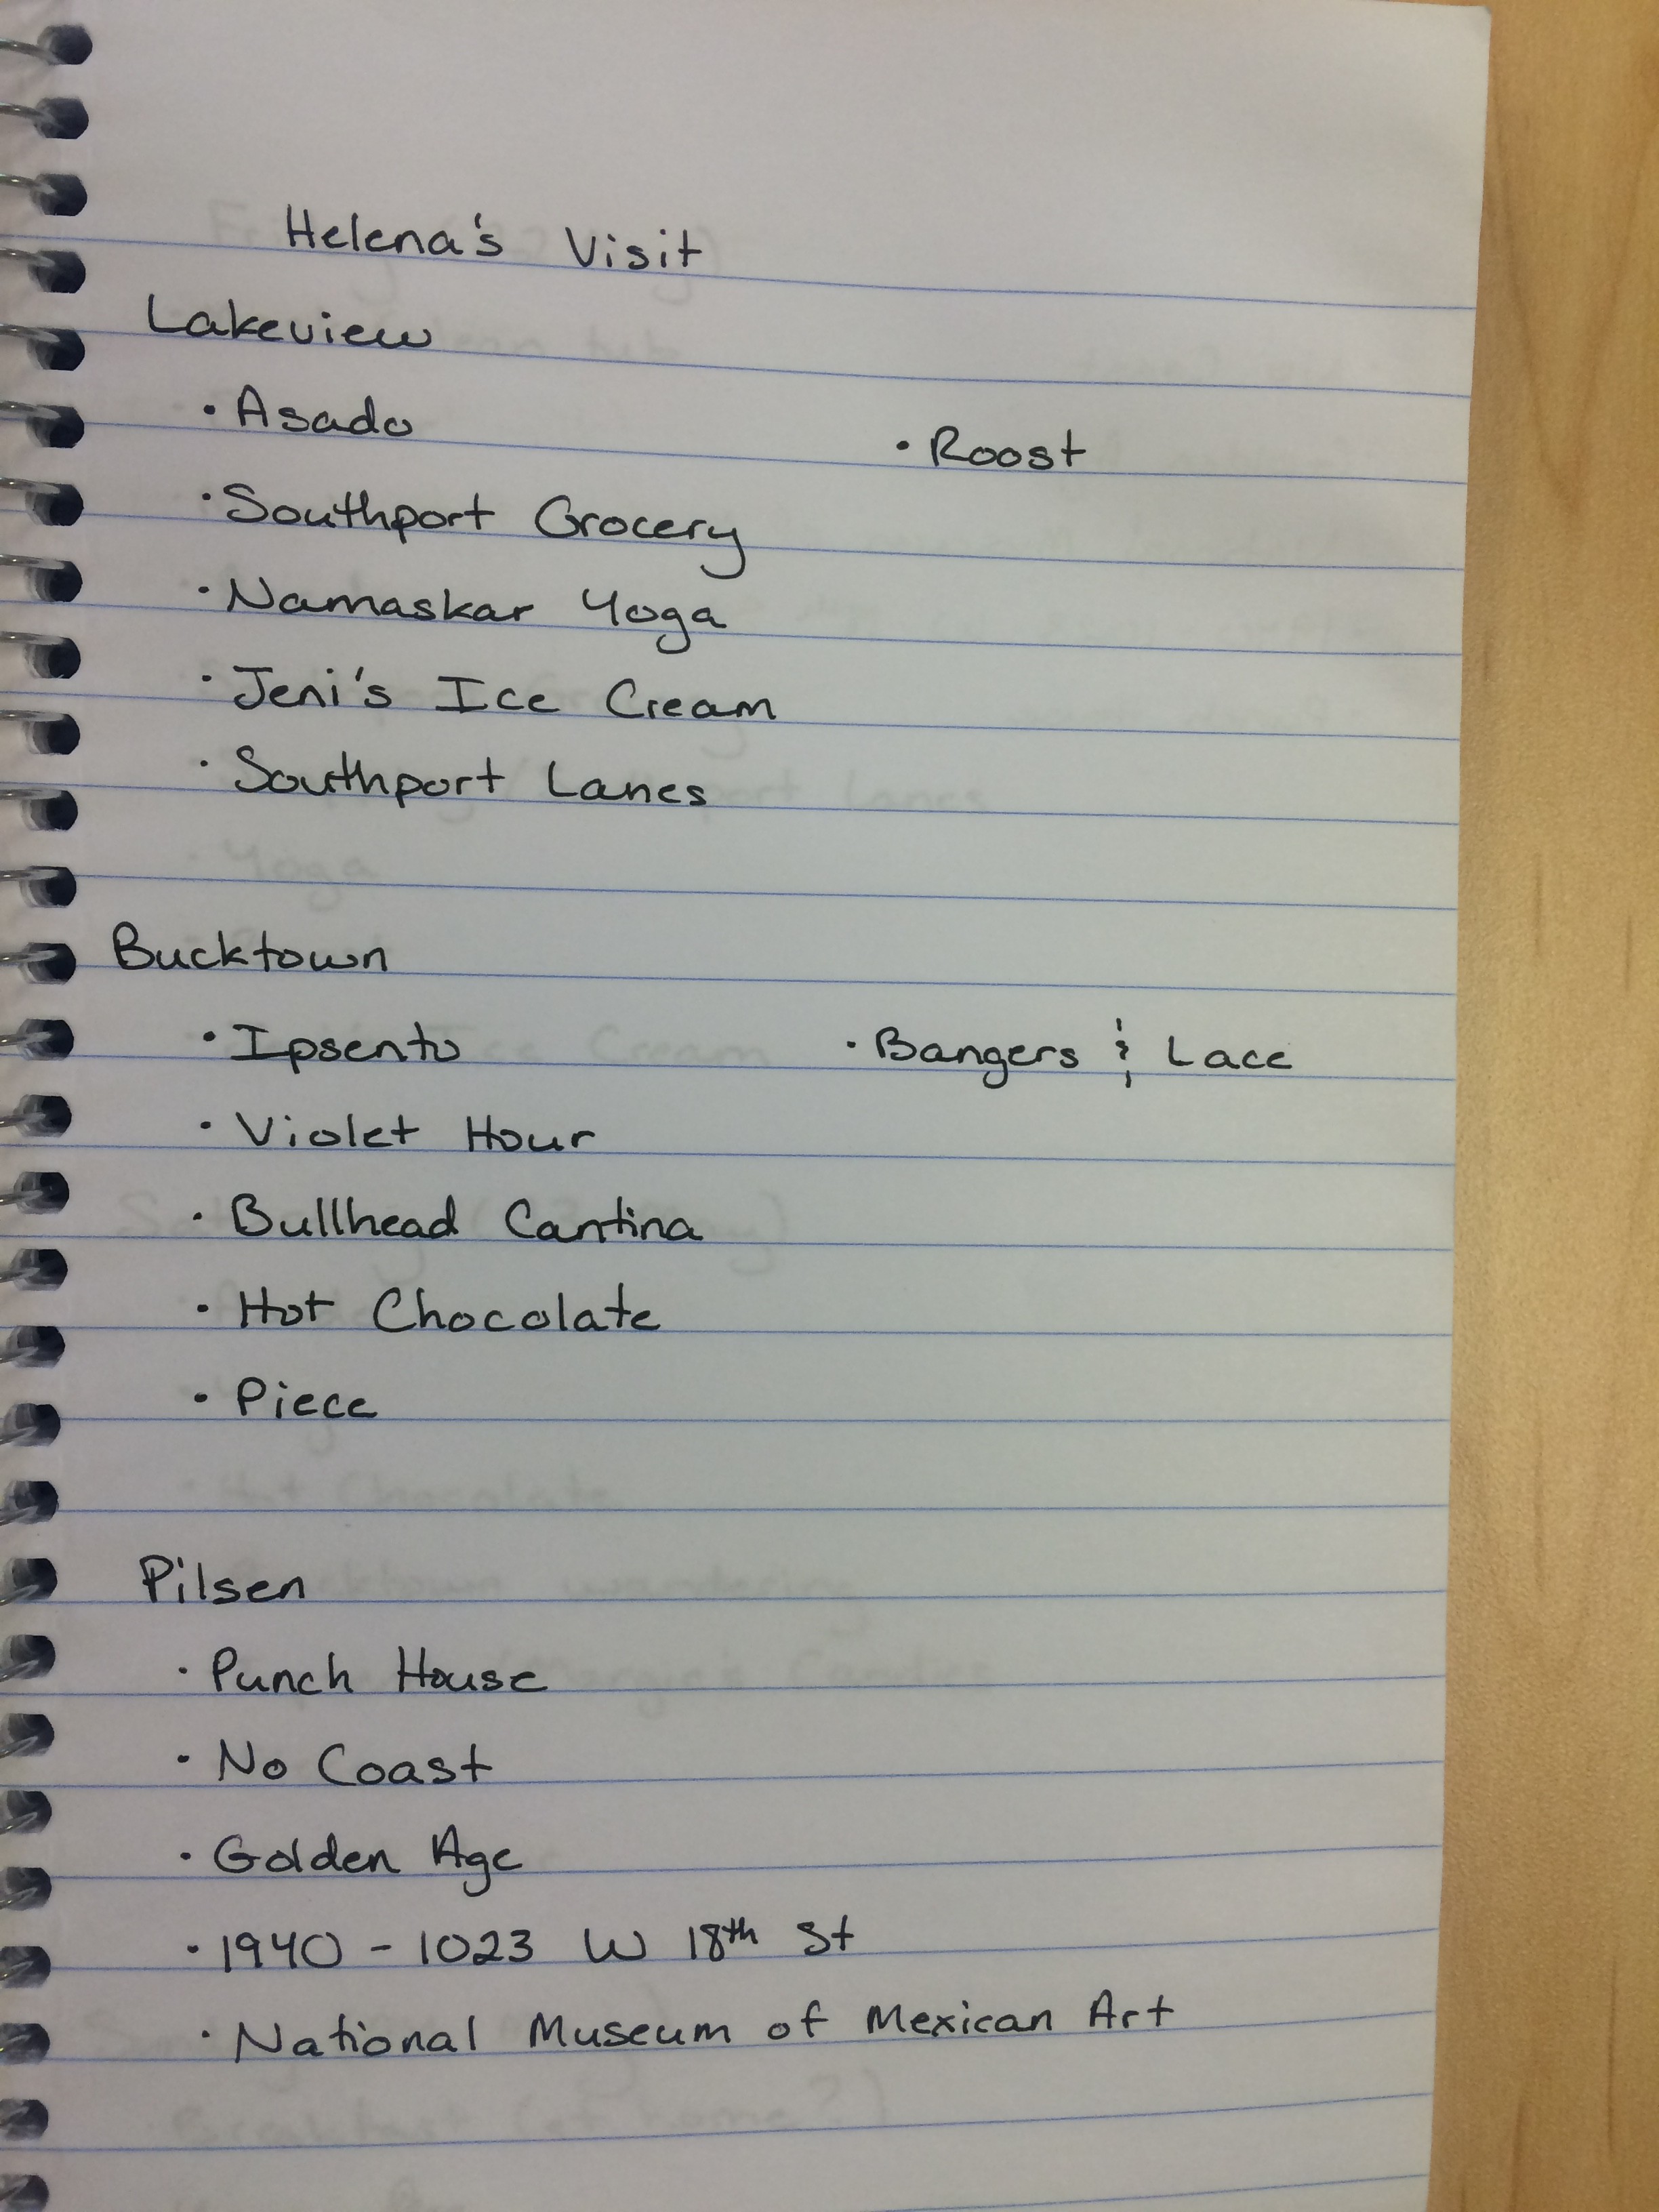 Helena's Visit
Lakeview
• Asado • Roost
• Southport Grocery
• Namaskar Yoga
• Jeni's Ice Cream
• Southport Lanes
Bucktown
• Ipsento • Bangers & Lace
• Violet Hour
• Bullhead Cantina
• Hot Chocolate
• Piece
Pilsen
• Punch House
• No Coast
• Golden Age
• 1940 - 1023 W 18th St
• National Museum of Mexican Art